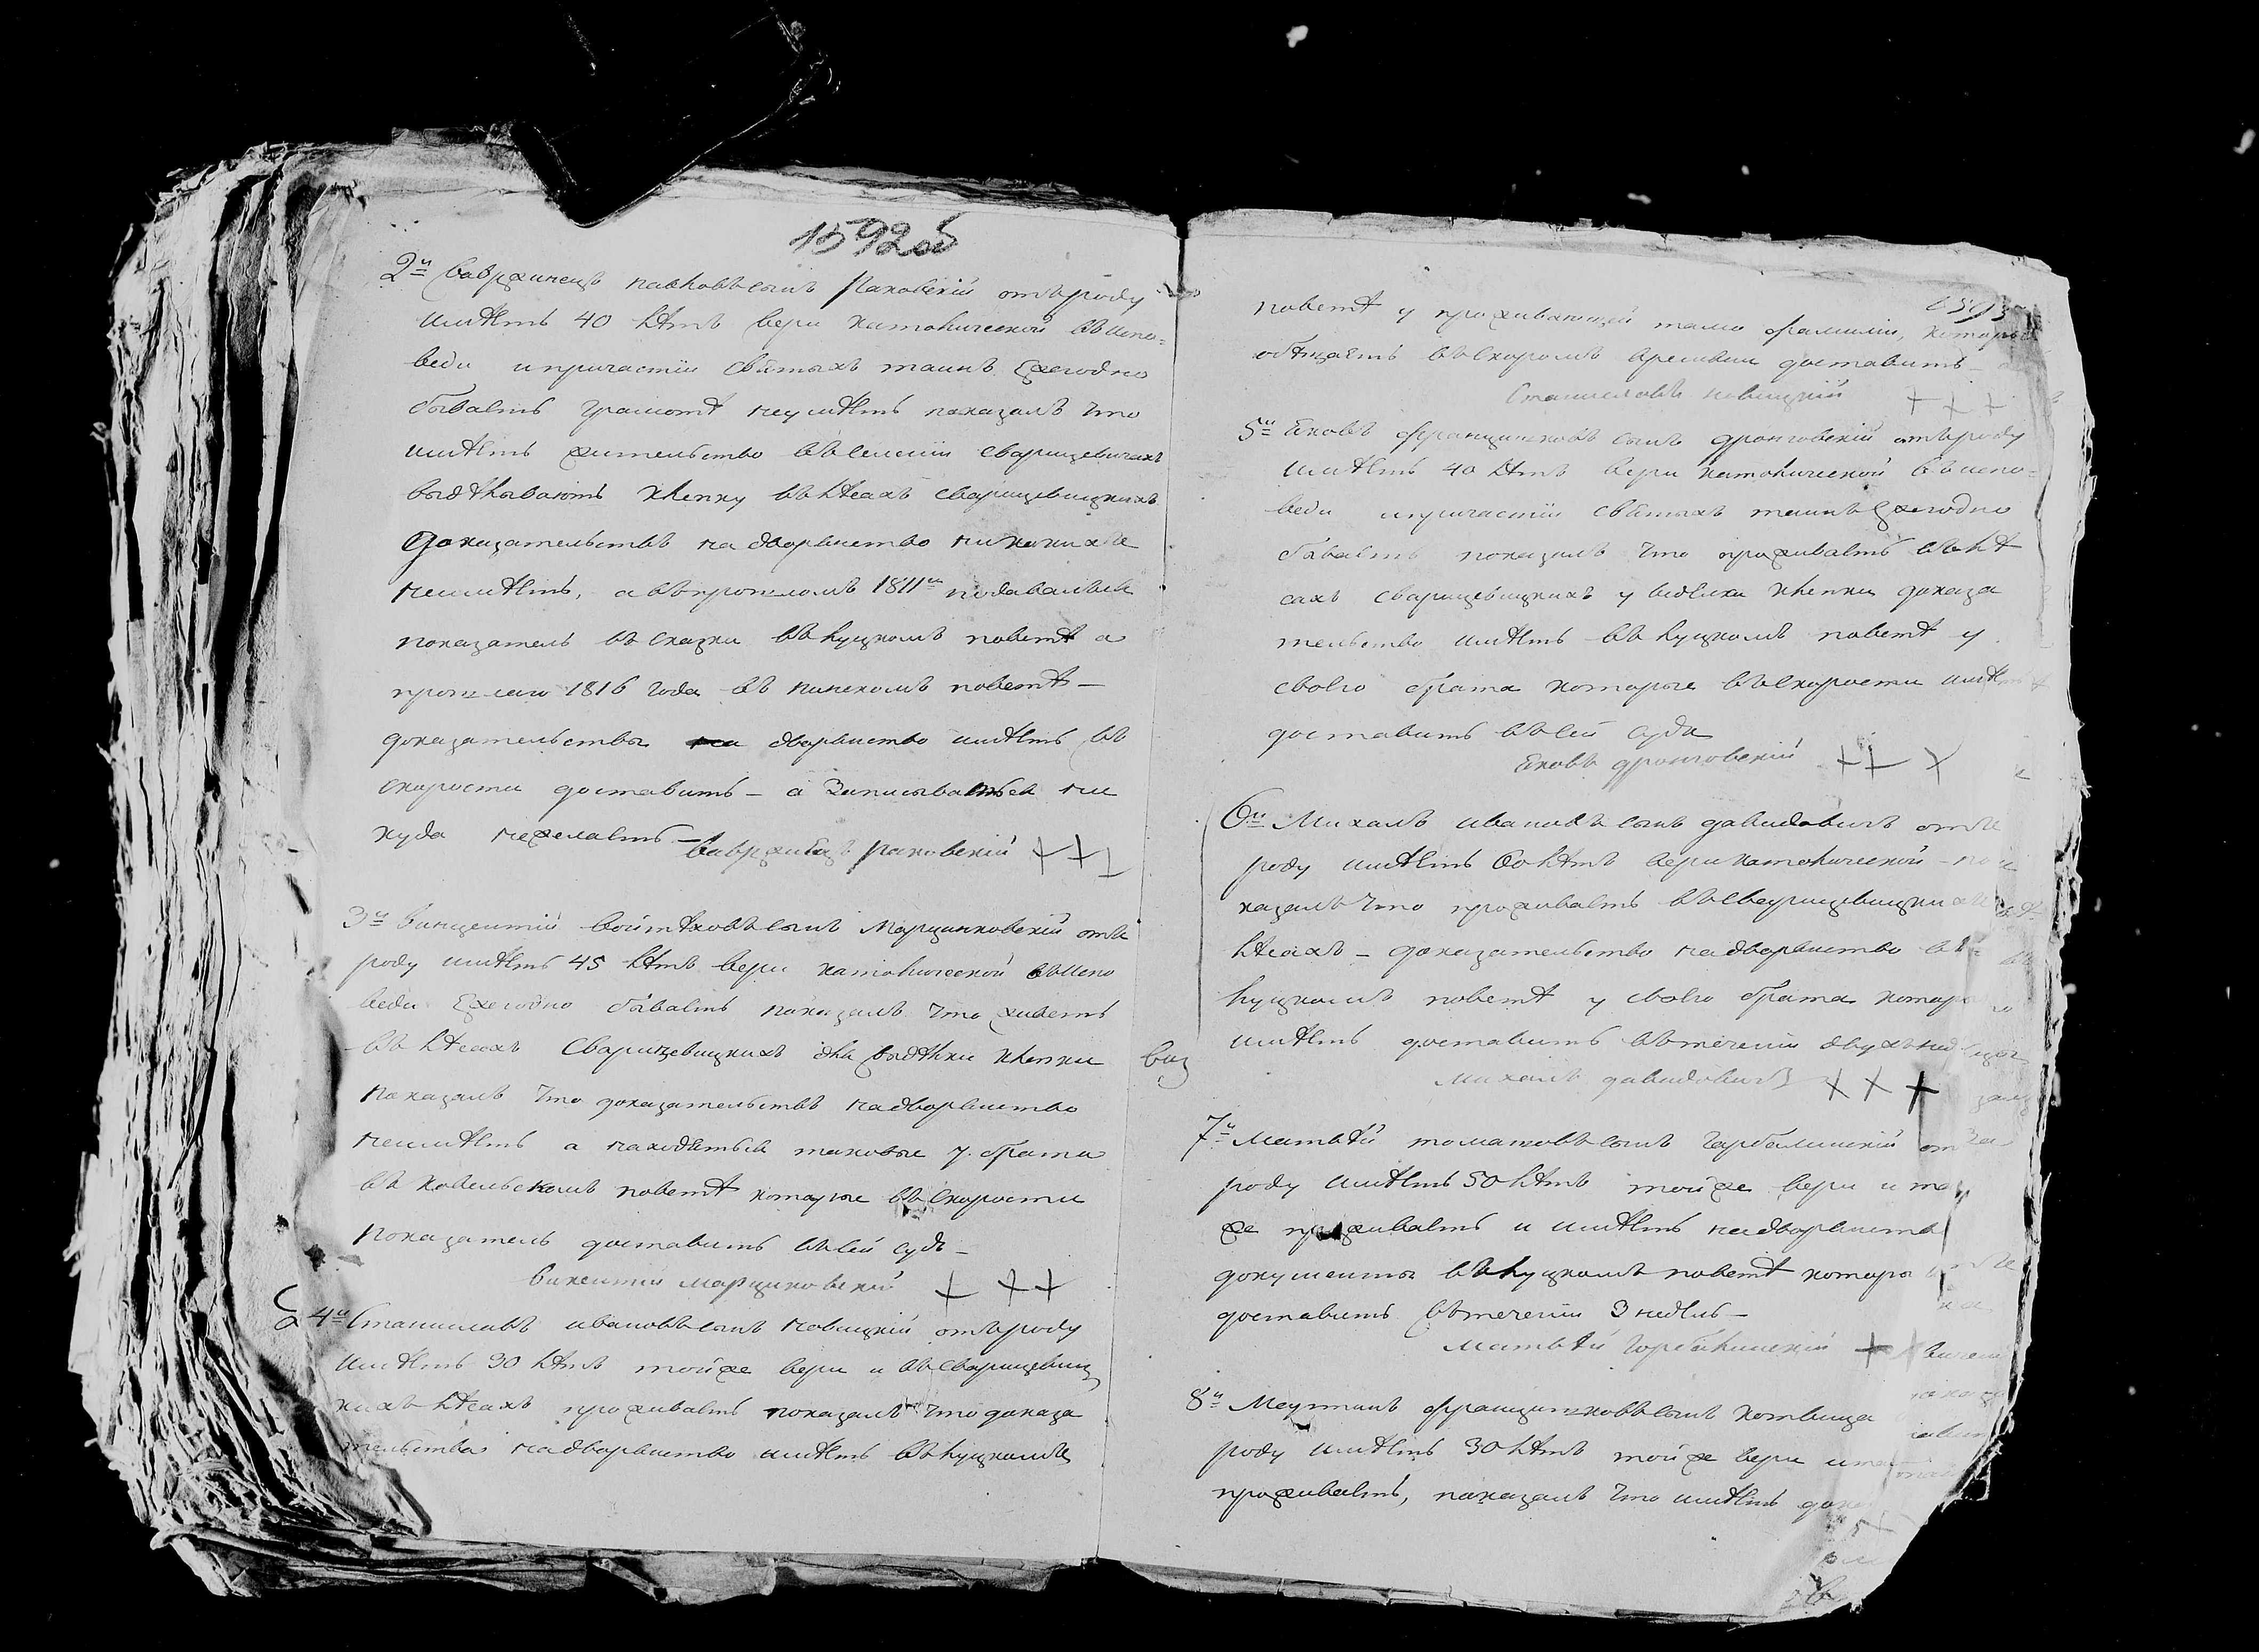 1592об
2й Вавржинецъ павловъ сынъ Раковскій отъ роду
имѣетъ 40 лѣтъ вери католической въ испо=
веди и причастіи святыхъ таинъ Ежегодно
бываетъ грамотѣ неумѣетъ показалъ что
имѣетъ жительство въ селеніи сварицевичахъ
выдѣлываютъ клепку въ лѣсахъ сварицевицкихъ
Доказательствъ на дворянство никакихъ
неимѣетъ, а въ прошломъ 1811м подавалься
показатель въ сказки въ луцкомъ поветѣ а
прошлаго 1816 года въ пинскомъ поветѣ —
доказательства на дворянство имѣетъ въ
скорости доставить — а Записыватся ни
куда нежелаетъ —
Вавржинецъ раковскій + + +
3й Винцентій войтѣховъ сынъ Марцинковскій отъ
роду имѣетъ 45 лѣтъ вери католической въ испо
веди Ежегодно бываетъ показалъ что живетъ
въ лѣсахъ Сварицевицкихъ для выдѣлки клепки
показалъ что доказательствъ на дворянство
неимѣетъ а находяться таковые у брата
въ ковельскомъ поветѣ которые въ скорости
показатель доставить въ сей судъ —
Викентій марцинковскій + + +
4й Станиславъ ивановъ сынъ новицкій отъ роду
имѣетъ 30 лѣтъ тойже вери и въ Сварицевиц
кихъ лѣсахъ проживаетъ показалъ что доказа
тельства на дворянство имѣетъ въ луцкомъ
1593
поветѣ у проживающей тамо фамиліи, которые
обѣщаетъ въ скоромъ времени доставить —
Станиславъ новицкій + + +
5й Яковъ францишковъ сынъ дронговскій отъ роду
имѣетъ 40 лѣтъ вери католической въ испо=
веди и причастіи святыхъ таинъ Ежегодно
бываетъ показалъ что проживаетъ въ лѣ
сахъ сварицевицкихъ у выделки клепки доказа
тельство имѣетъ въ луцкомъ поветѣ у
своего брата которые въ скорости имѣетъ
доставить въ сей суда
Яковъ дронговскій + + +
6й Михалъ ивановъ сынъ давидовичъ отъ
роду имѣетъ 60 лѣтъ вери католической — по
казалъ что проживаетъ въ сварицевицкихъ
лѣсахъ — доказательство на дворянство въ
луцкомъ поветѣ у своего брата котор
имѣетъ доставить въ теченіи двухъ нед
Михалъ давидовичъ + + +
7й Матьвѣй томашовъ сынъ Горбалинскій от
роду имѣетъ 50 лѣтъ тойже вери и та
же проживаетъ и имѣетъ на дворянства
документы въ луцкомъ поветѣ которы
доставить въ теченіи 3 недель —
Матьвѣй Горбалинскій + +
8й францишковъ сынъ
роду имѣетъ 30 лѣтъ тойже вери и та
проживаетъ, показалъ что имѣетъ дока